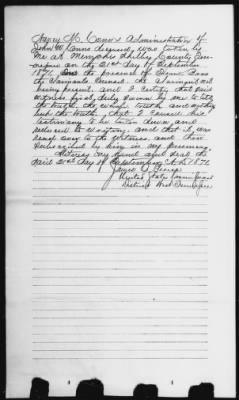 John W. deceased, was taken by
me at Memphis Shelby County Ten-
nessee on the 21st day of September
1871, in the presence of
the Claimants Counsel the Claimant not
being present. and I certify that said
witness first, duly sworn by me to tell
the truth, the whole truth, and nothing
but the truth, that I caused the
testimony to be taken down and
reduced to writing. and that it was
read over to the witness, and then
subscribed by him in my presence
Witness my hand and seal the
said 21st day of September A.D. 1871.
James
United States Commissioner
District West Tennessee